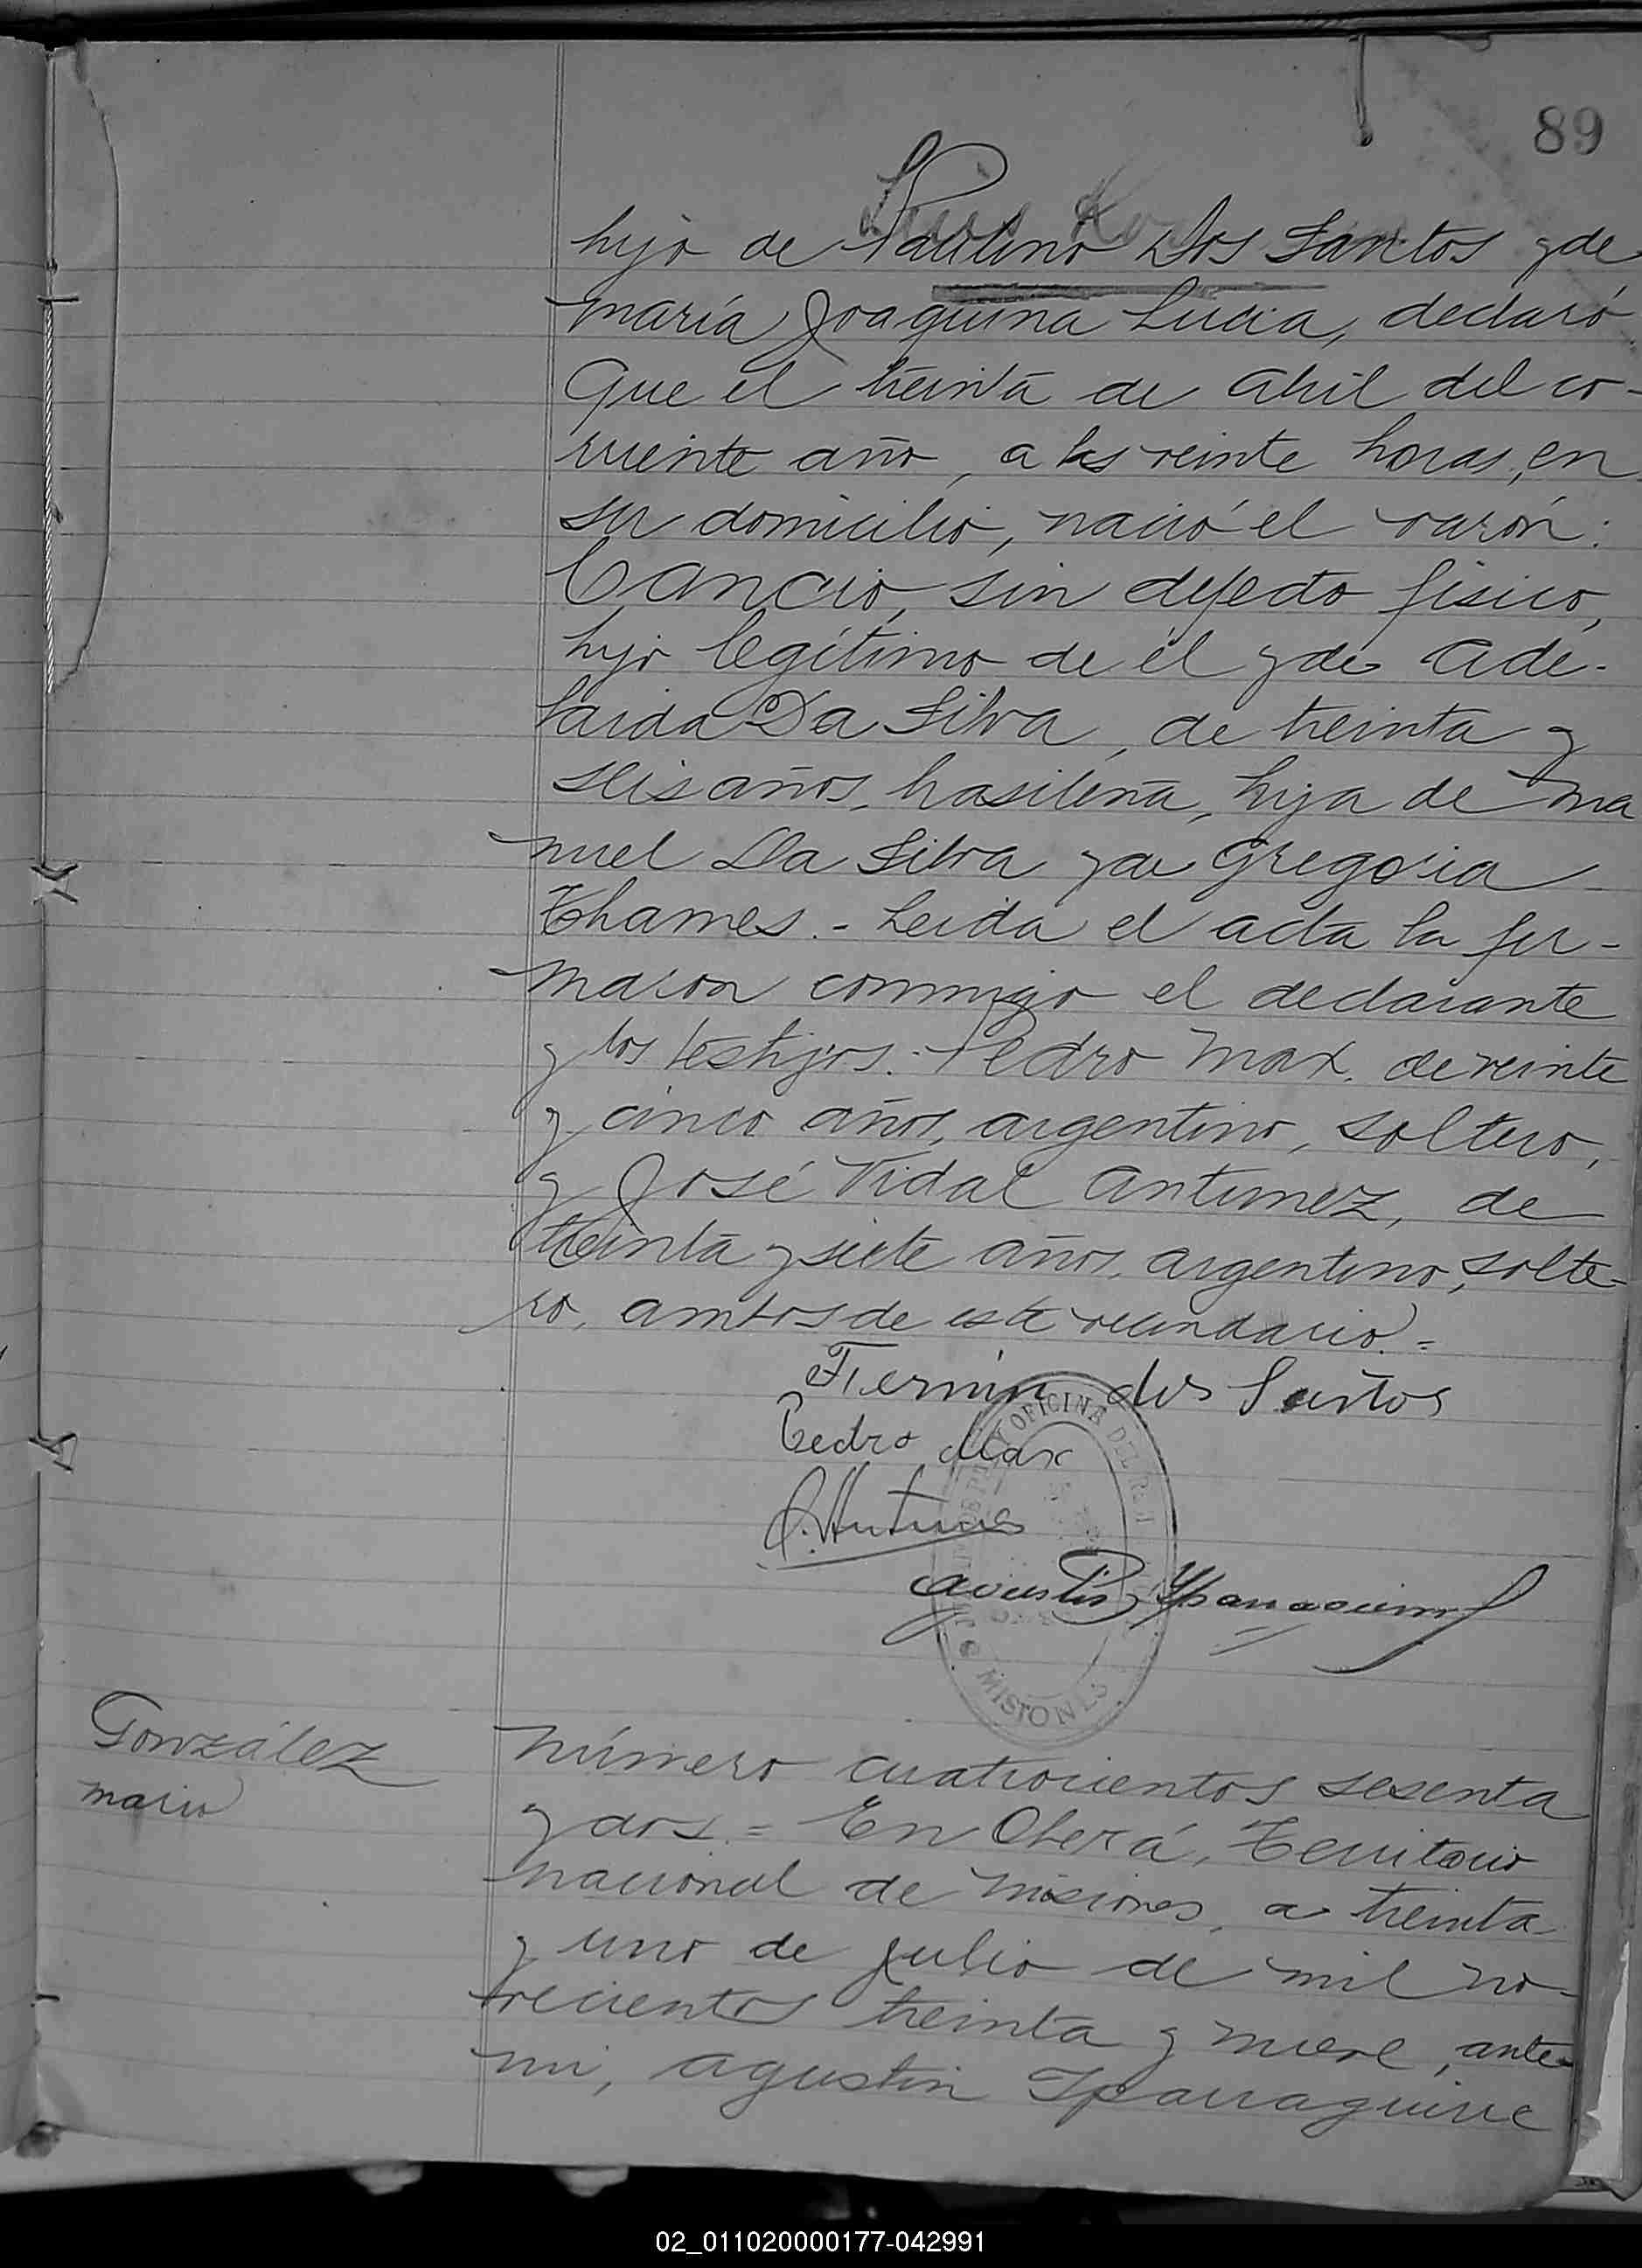 89
hijo de Paulino Dos Santos y de
María Joaquina Lucia, declaró:
Que el treinta de Abril del co-
rriente año, a las veinte horas, en
su domicilio, nació el varón:
Cancio, sin defecto físico,
hijo legítimo de él y de Ade-
laida Da Silva, de treinta y
seis años, brasileña, hija de Ma
nuel Da Silva y de Gregoria
Thames.- Leida el acta la fir-
maron conmigo el declarante
y los testigos: Pedro Max, de veinte
y cinco años, argentino, soltero,
y José Vidal Antunez, de
treinta y siete años, argentino, solte-
ro, ambos de este vecindario.=
Fiermin dos Santos
Pedro Max
Antunes
OFICINA DEL
Agustin Yparraguirre
MISIONES
González
Mario
Número cuatrocientos sesenta
y dos.= En Oberá, Territorio
Nacional de Misiones, a treinta
y uno de Julio de mil no-
vecientos treinta y nueve, ante
mi, Agustin Yparraguirre
02_011020000177-042991